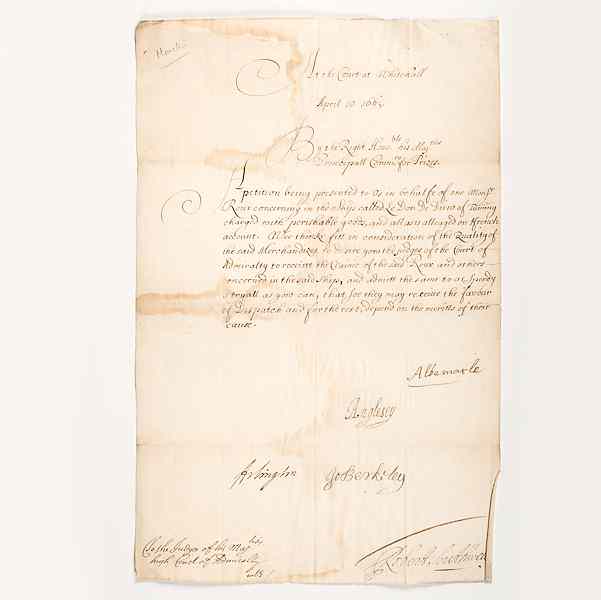 At the Court at Whitehall
April 10 166
By the Right Hono:ble his Maj:ties
Principall Comm:rs for Prizes.
A petition being presented to us in behalfe of one Mons:r
Roux concerning the Ship called Le Don de Dieu of
charged with perishable goods, and all as is alleaged on ffrench
account. Wee thinke fitt in consideration of the Quality of
the said Merchandizes to desire you the Judges of the Court of
Admiralty to receive the Claime of the said Roux and others
concerned in the said Ship, and admitt the same to as speedy
a tryall as you can, that soe they may receive the favour
of Dispatch and for the rest, depend on the meritts of their
cause.
Albemarle
Anglesey
Arlington JoBerkeley
To the Judges of his Maj:ties
high Court of Admiralty
Robert Southwell